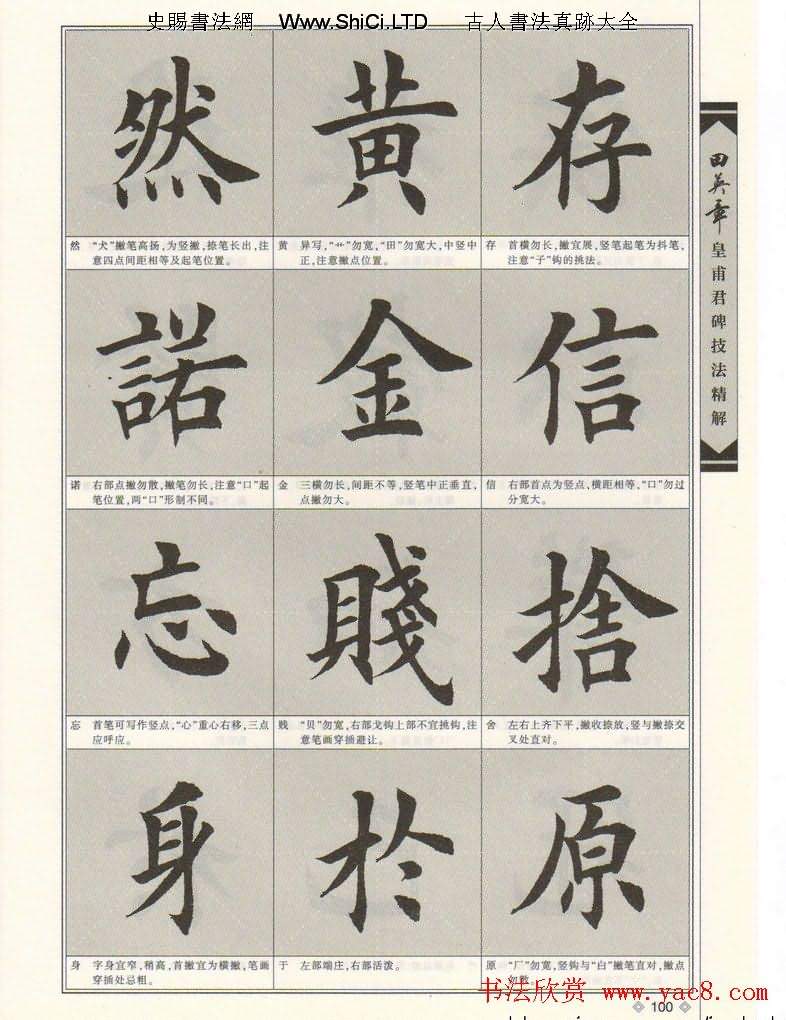 史賜書法網 Www.ShiCi.LTD 古人書法真跡大全
然 黄 存
然 “犬”撇笔高扬,为竖撇,捺笔长出,注
意四点间距相等及起笔位置。
黄 异写,“艹”勿宽,“田”勿宽大,中竖中
正,注意撇点位置。
存 首横勿长,撇宜展,竖笔起笔为抖笔,
注意“子”钩的挑法。
諾 金 信
诺 右部点撇勿散,撇笔勿长,注意“口”起
笔位置,两“口”形制不同。
金 三横勿长,间距不等,竖笔中正垂直,
点撇勿大。
信 右部首点为竖点,横距相等,“口”勿过
分宽大。
忘 賤 捨
忘 首笔可写作竖点,“心”重心右移,三点
应呼应。
贱 “贝”勿宽,右部戈钩上部不宜挑钩,注
意笔画穿插避让。
舍 左右上齐下平,撇收捺放,竖与撇捺交
叉处直对。
身 於 原
身 字身宜窄,稍高,首撇宜为横撇,笔画
穿插处忌粗。
于 左部端庄,右部活泼。
原 “厂”勿宽,竖钩与“白”撇笔直对,撇点
田英章皇甫君碑技法精解
书法欣赏 www.yac8.com
100